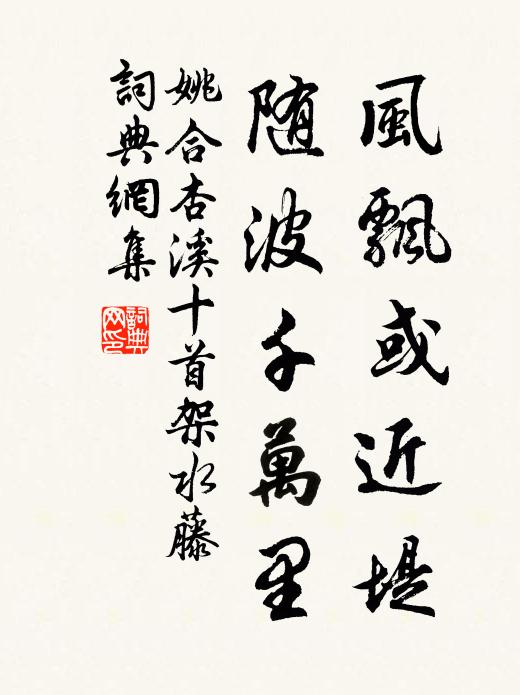 風飄或近堤
随波千萬里
姚合杏溪十首架水藤
詞典網集
詞典网印